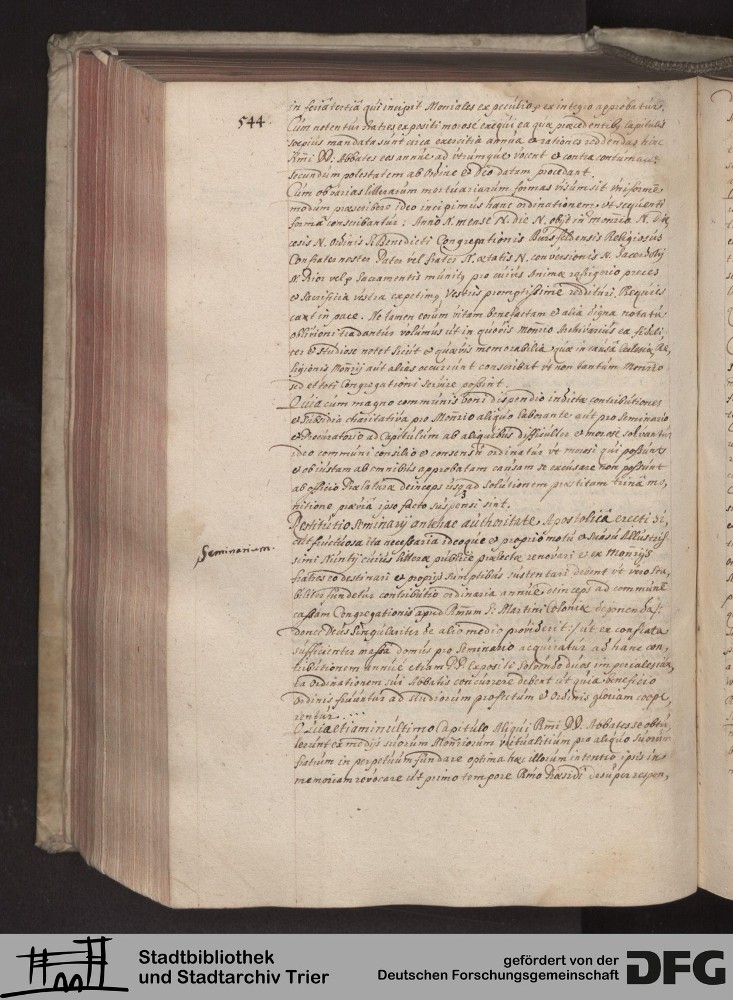 544
in feria tertia qui incipit Moniales ex peculio, ex integro approbatur.
Cum notentur Fratres expositi morose exequi ea quæ præcedentibq Capitulis
sæpius mandata sunt circa exercitia annua et rationes reddendas hinc
Rmi DD: Abbates eos annue ad utrumque vocent et contra contumaces
secundum potestatem ab Ordine et Deo datam procedant.
Cum ob varias litterarum mortuariarum formas visum sit uniformē
modum præscribere ideo incipimus hanc ordinationem, ut sequenti
formâ conscribantur: Anno N. mense N. die N. obijt in monrio N. Diæ
cesis N. Ordinis S. Benedicti Congregationis Bursfeldensis Religiosus
Confrater noster Pater vel frater N. ætatis N. conversionis N. Sacerdotij
N. Prior vel p Sacramentis munitq pro cuius Animæ refrigerio preces
et Sacrificia vestra expetimq, Vestris promptissime reddituri. Requies
cant in pace. Ne tamen eorum vitam benefactam et alia digna notatu
oblivioni tradantur volumus ut in quovis Monrio Archivarius ea fideli
ter et studiose notet sicut et quævis memorabilia quæ in causâ Ecclesiæ, Re,
ligionis Monrij aut alias occurrunt conscribat ut non tantum Monrio
sed et toti Congregationi servire possint.
Quia cum magno communis boni dispendio indictæ contributiones
et subsidia charitativa pro Monrio aliquo laborante aut pro Seminario
et Procuratorio ad Capitulum ab aliquibus difficulter et morose solvantur
ideo communi consilio et consensu ordinatur ut morosi qui possunt
et ob iustam ab omnibus approbatam causam se excusare non possunt
ab officio Prælaturæ deinceps usq ad solutionem præstitam trinâ mo,
nitione præviâ ipso facto suspensi sint.
Seminarium.
Restitutio Seminarij antehac authoritate Apostolicâ erecti si,
cut fructuosa ita necessaria ideoque et proprio motu et suasu Illustris,
simi Nuntij cuius litteræ publice prælectæ renovari et ex Monrijs
fratres eo destinari et proprijs sumptibus sustentari debent ut vero sta,
bilitas fundetur contributio ordinaria annue deinceps ad communē
cassam Congregationis apud Rmum S: Martini Coloniæ deponenda /:
donec Deus singulariter de alio medio providerit :/ ut ex conflata
sufficienter massa domus pro Seminario acquiratur ad hanc con,
tributionem annue etiam PP. Expositi solvendo duos imperiales iux,
ta Ordinationem sui Abbatis concurrere debent ut quia beneficio
Ordinis fruuntur ad studiorum profectum et Ordinis gloriam coope,
rentur....
Quia etiam in ultimo Capitulo Aliqui Rmi DD. Abbates se obtu,
lerunt ex medijs suorum Monriorum victualitium pro aliquo suorum
fratrum in perpetuum fundare optima hæc illorum intentio ipsis in
memoriam revocare ut primo tempore Rmo Præsidi desuper respon,
Stadtbibliothek
und Stadtarchiv Trier
gefördert von der
Deutschen Forschungsgemeinschaft
DFG